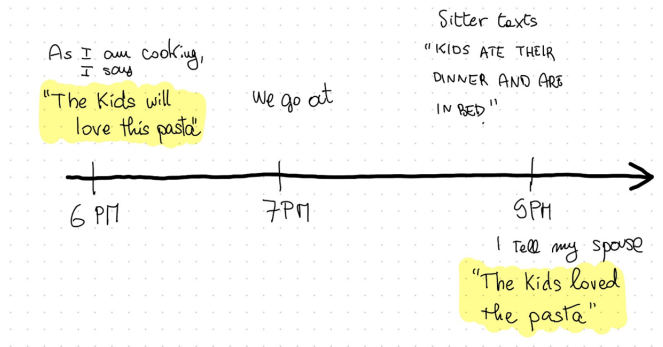 As I am cooking,
I say
"The Kids will
love this pasta"
we go at
Sitter texts
"KIDS ATE THEIR
DINNER AND ARE
IN BED"
6 PM
7PM
9PM
I Tell my spouse
"The Kids loved
the pasta"